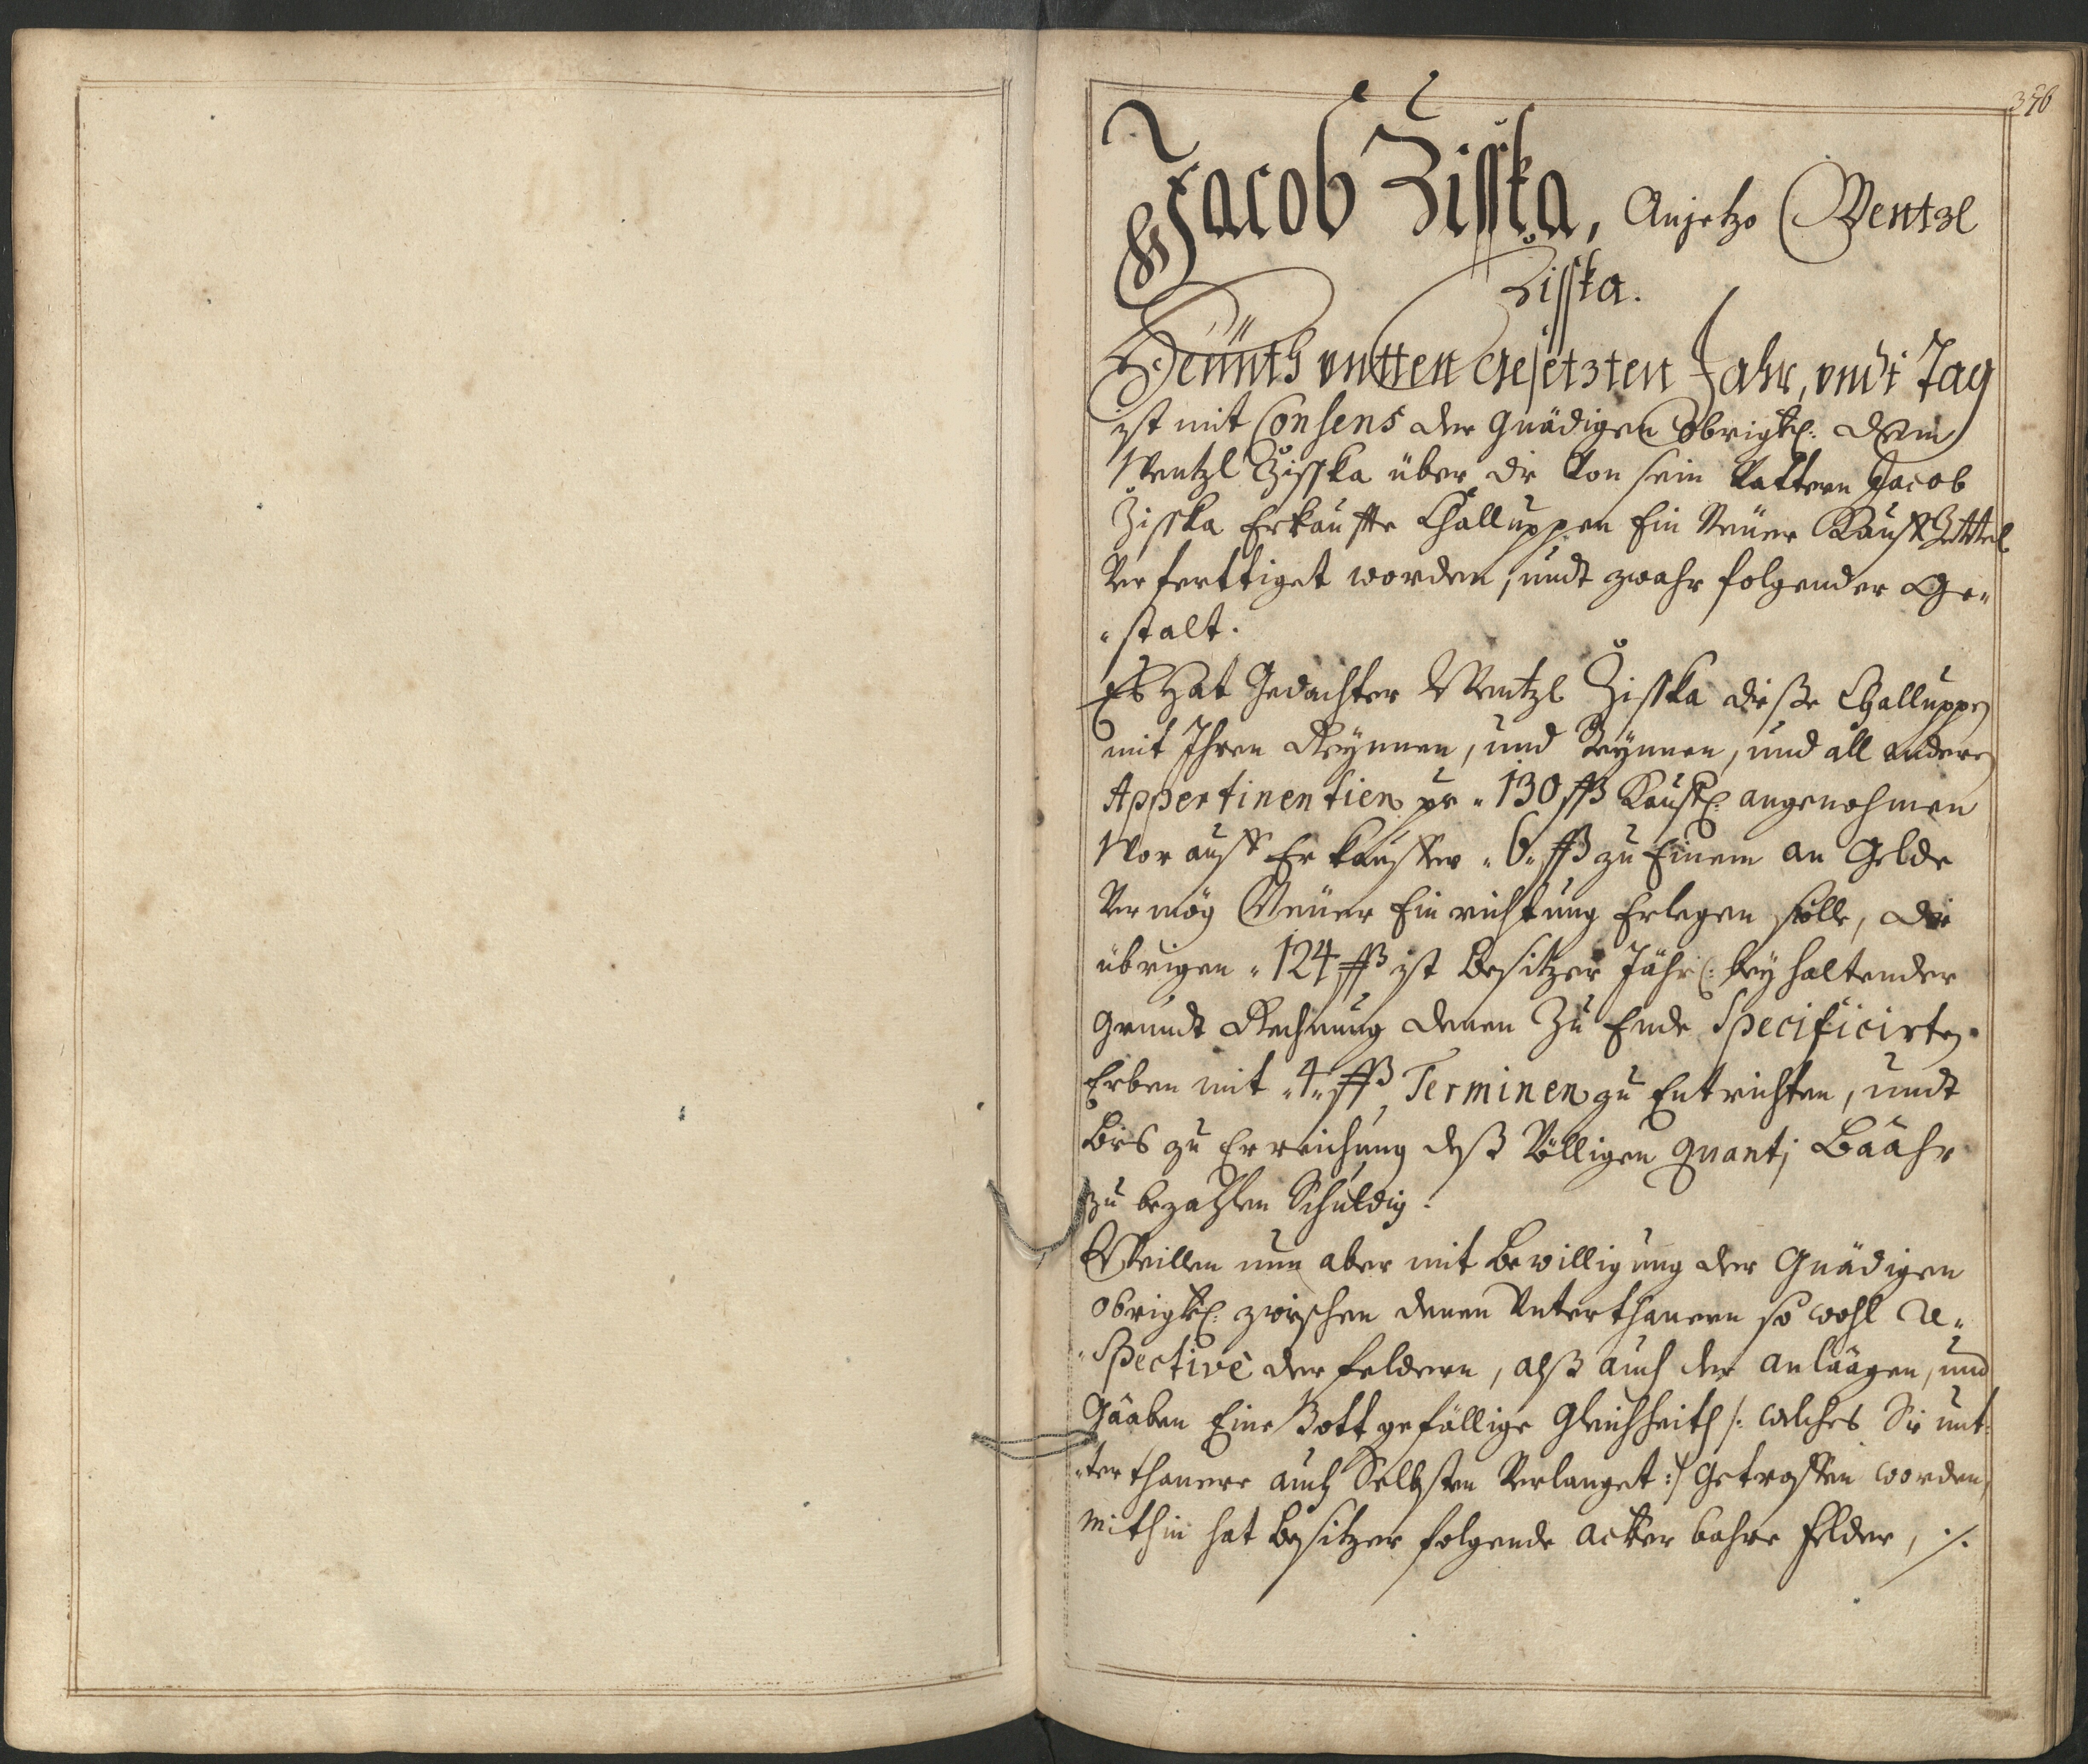 376
Jacob Zisska, Anjetzo Wentzl
Zisska.
Heünth untten Gesetzten Jahr, undt Tag
ist mit Consens der Gnädigen Obrigk: dem
Wentzl Zisska über die Von sein Vattern Jacob
Zisska Erkauffte Challuppen Ein Neüer Kauff Zettel
Verferttiget worden, undt zwahr folgender Ge-
-stalt.
Es Hat Gedachter Wentzl Zisska dieße Challuppen
mit Ihren Reynnen, und Steynnen, und all andern
Appertinentien pr. 130 ßß Kauffl: angenohmen
Worauff Er Kauffer 6 ßß zu Einem an Gelde
Vermög Neüer Einrichtung Erlegen solle, die
übrigen 124 ßß ist Besitzer Jährl: bey haltender
Grundt Rechnung denen Zu Ende Specificirten
Erben mit 4 ßß Terminen zu Entrichten, undt
Bies zu Erreichung deß Völligen quanti Baahr
zu bezahlen Schuldig.
Weillen nun aber mit Bewilligung der Gnädigen
Obrigk: zwischen denen Unterthanern so wohl Re-
-Spectivè der feldern, alß auch der anlaagen, und
Gaaben Eine Gott gefällige Gleichheith /: welches Sie unt-
-terthanere auch Selbsten Verlanget :/ Getroffen worden,
Mithin hat Besitzer folgende ackerbahre felder, ./.